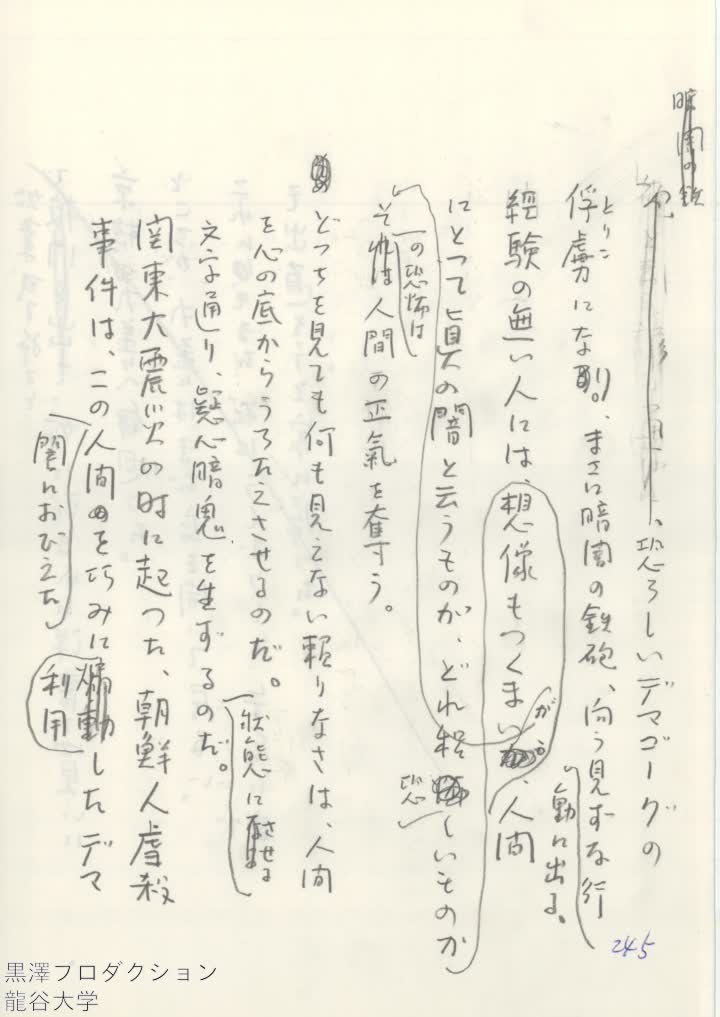 、恐ろしいデマゴーグの
俘虜にな、まさに暗闇の鉄砲、向う見ずな行
とりこ
動に出る、
経験の無い人には、想像もつくまいが、人間
にとって真の闇と云うものが、どれ程恐しいものか
その恐怖は人間の正氣を奪う。
どっちを見ても何も見えない頼りなさは、人間
を心の底からうろたえさせるのだ。
状態に させる
文字通り、疑心暗鬼を生ずるのだ。
関東大震災の時に起った、朝鮮人虐殺
事件は、この人間を巧みに煽動したデマ
闇におびえた
利用
245
黒澤プロダクション
龍谷大学